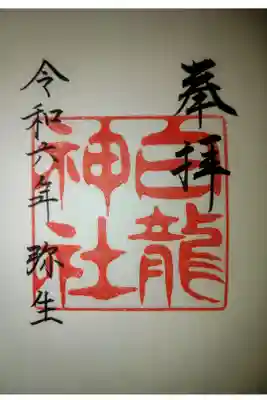 奉拝
白龍
神社
令和六年 弥生